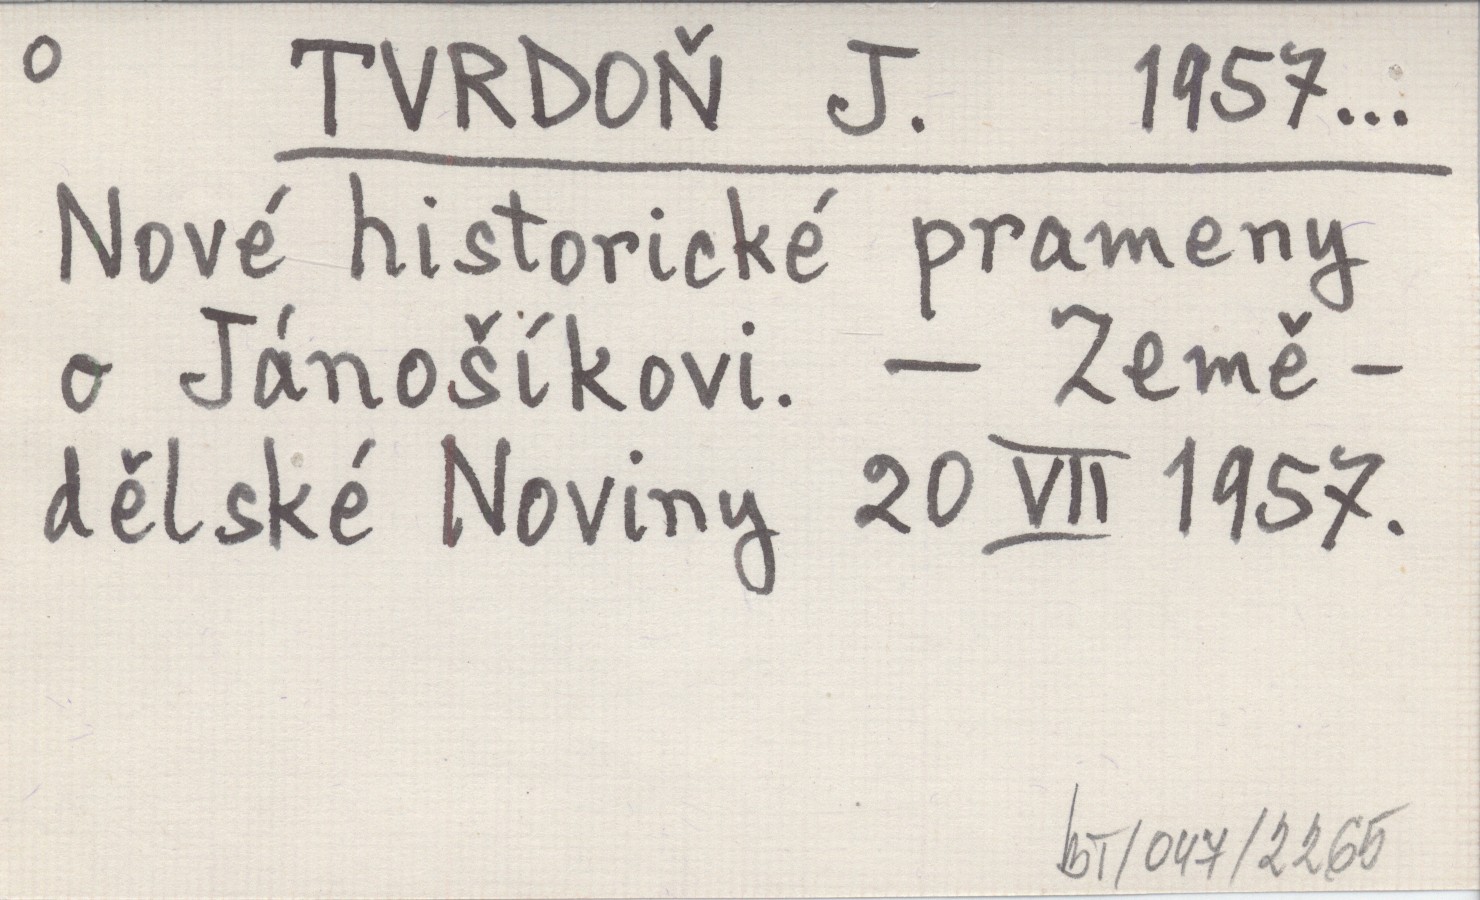 o TVRDOŇ J. 1957...
Nové historické prameny
o Jánošíkovi. — Země-
dělské Noviny 20 VII 1957.
bT/047/2265